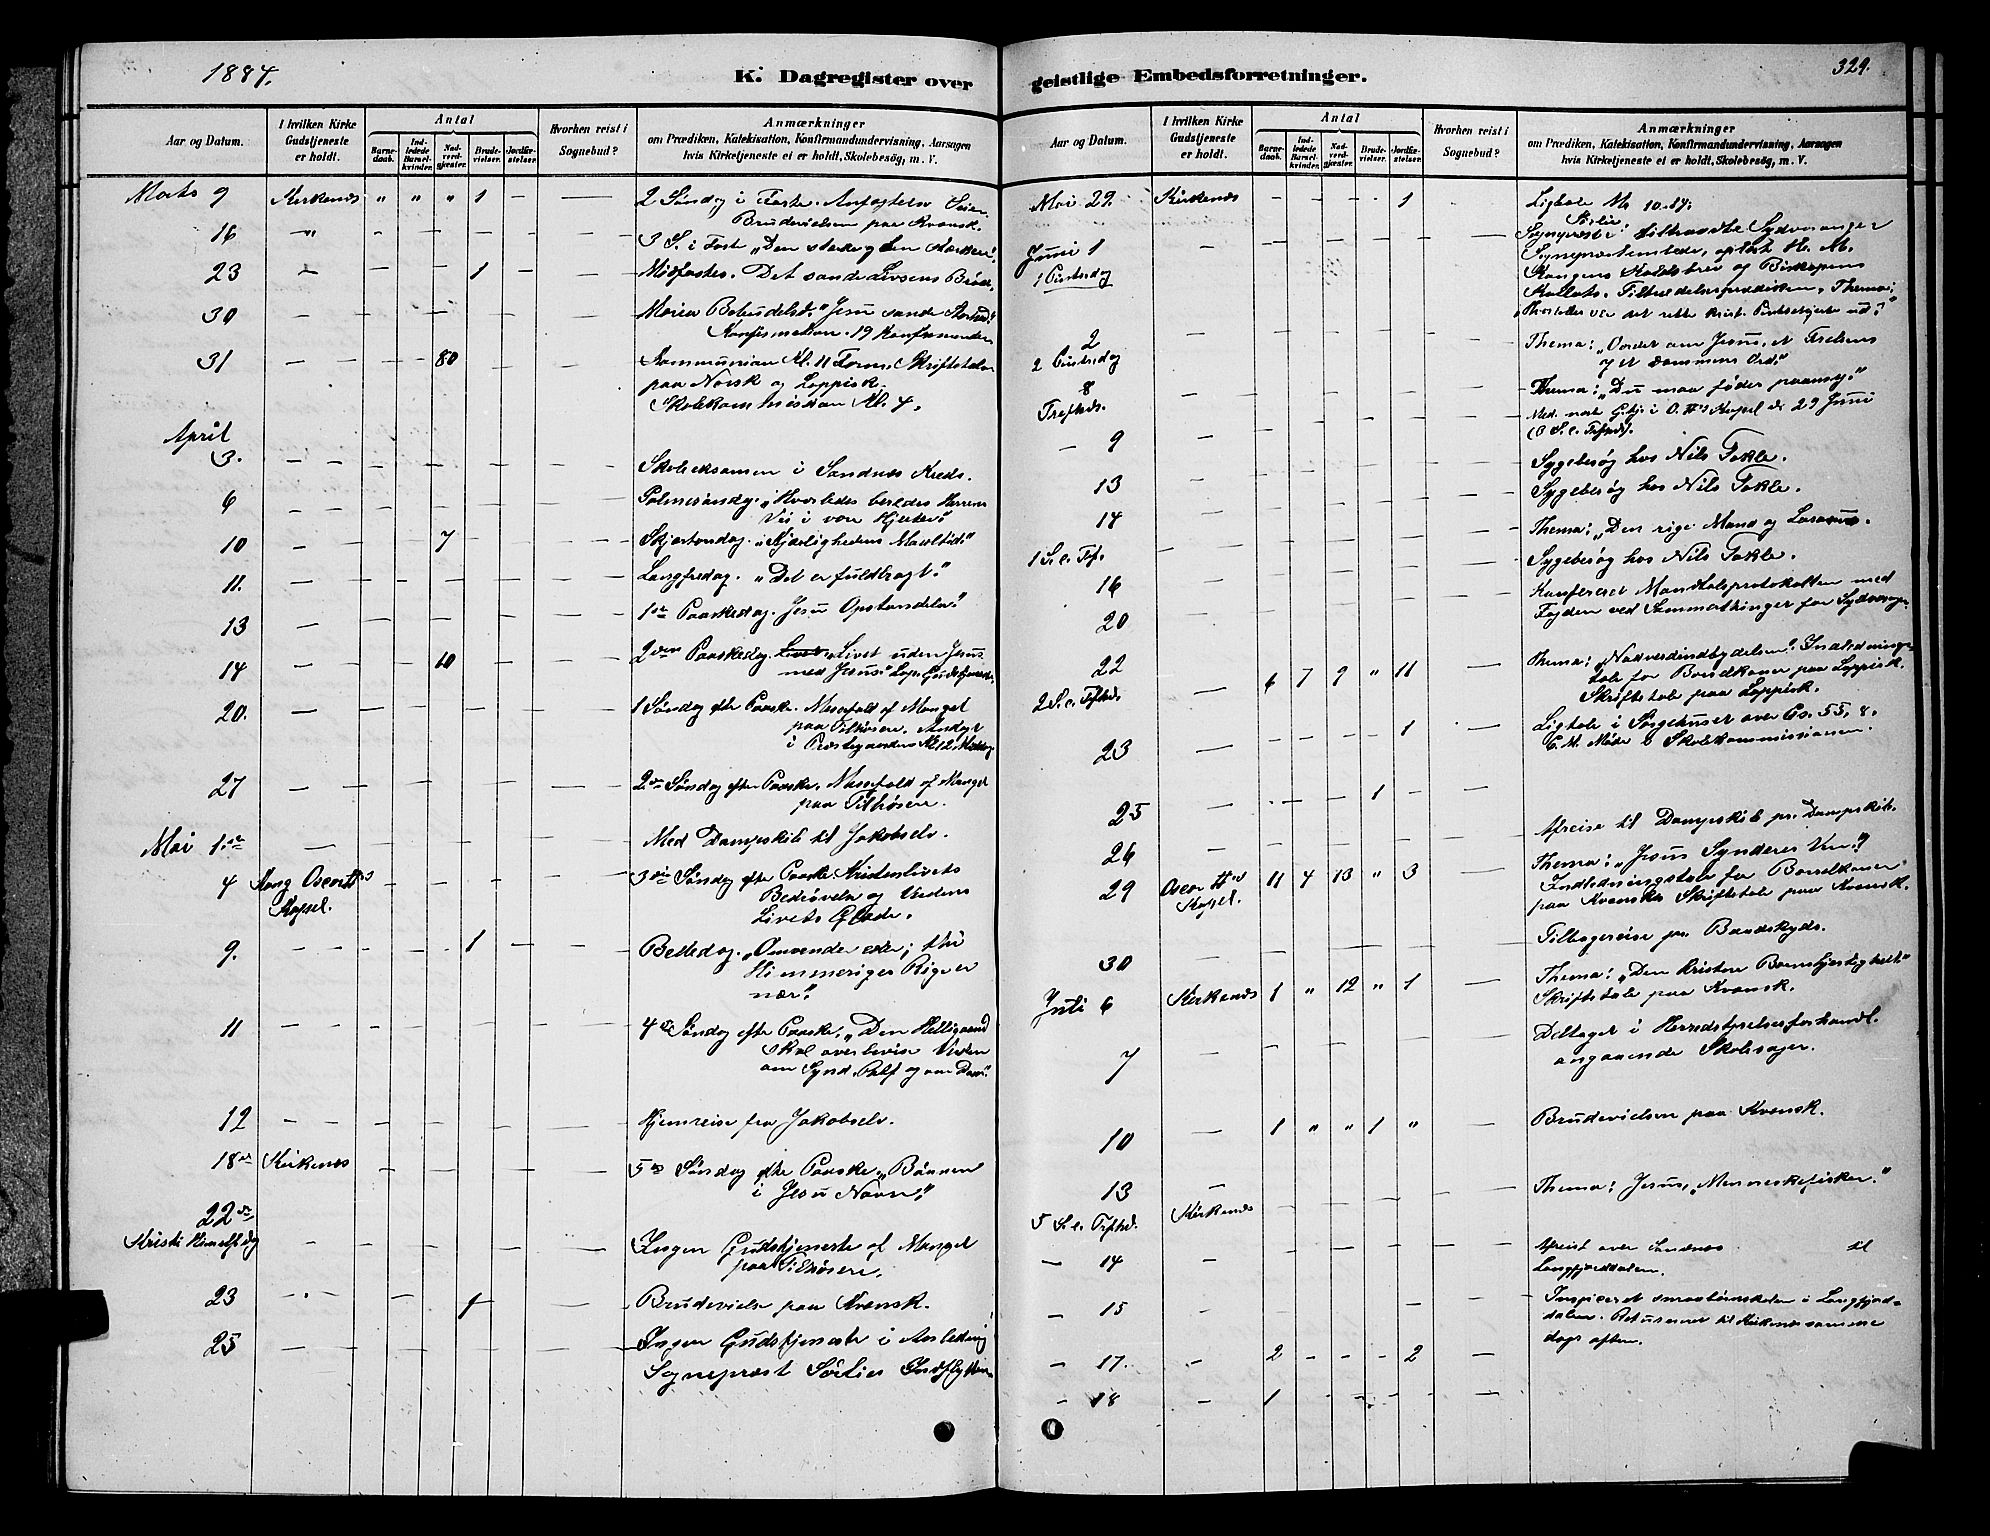 1884.
K. Dagregister over
Aar og Datum.
I hvilken Kirke Gudstjeneste er holdt.
Antal
Barnedaab.
Indledede Barselkvinder.
Nadverdgjæster.
Brudevielser.
Jordfæstelser.
Hvorhen reist i Sognebud?
Anmærkninger
om Prædiken, Katekisation, Konfirmandundervisning, Aarsagen
hvis Kirketjeneste ei er holdt, Skolebesög, m. V.
Marts 9 Kirkenæs " " " 1 - - 2 Søndag i Faste.
Brudevielsen paa Kvænsk.
16 " - - - - - - 3 S. i Fast. „Den stærke og den stærkere"
23 - - - - 1 - - Midfaste. Det sande Livsens Brød.
30 - - - - - - - Mariæ Bebudelsd. „Jesu sande
Konfirmation. 19 Konfirmander
31 - - - 80 - - - Kommunion Kl. 11 Form. Skriftetale
paa Norsk og Lappisk.
Skolekommission Kl. 4.
April
3. - - - - - - - Skoleexamen i Sandnæs Kreds.
6 - - - - - - - Palmesøndag. „Hvorledes beredes Herrens
Vei i vore Hjerter"
10 - - - 7 - - - Skjærtorsdag. „Kjærlighedens Maaltid."
11. - - - - - - - Langfredag. „Det er fuldbragt."
13 - - - - - - - 1ste Paaskedag. Jesu Opstandelse."
14 - - - 10 - - - 2den Paaskedag. „Livet uden Jesus
med Jesus." Lap. Gudstjeneste.
20. - - - - - - - 1 Søndag efter Paaske. Messefald af Mangel
paa Tilhørere. Andagt
i Præstegaarden Kl. 12 Middag
27 - - - - - - - 2den Søndag efter Paaske. Messefald af Mangel
paa Tilhørere.
Mai 1ste - - - - - - - Med Dampskib til Jakobselv.
4 Kong Oscar IIs - - - - - - 3die Søndag efter Paaske Kristenlivets
Kapel. Bedrøvelse og Verdens
Livets Glæde.
9. - - - - 1 - - Bededag. „Omvender eder, thi
Himmeriges Rige er
nær."
11 - - - - - - - 4de Søndag efter Paaske. „Den Helligaand
skal overbevise Verden
om Synd, Retf og om Dom."
12 - - - - - - - Hjemreise fra Jakobselv.
18de Kirkenæs - - - - - - 5te Søndag efter Paaske. „Bønnen
i Jesu Navn."
22de
Kristi Himelf. dag - - - - - - - Ingen Gudstjeneste af Mangel
paa Tilhørere.
23 - - - - 1 - - Brudevielse paa Kvænsk.
25 - - - - - - - Ingen Gudstjeneste i Anledning
Sognepræst Indflytten
geistlige Embedsforretninger.
329.
Aar og Datum.
I hvilken Kirke Gudstjeneste er holdt.
Antal
Barnedaab.
Indledede Barselkvinder.
Nadverdgjæster.
Brudevielser.
Jordfæstelser.
Hvorhen reist i Sognebud?
Anmærkninger
om Prædiken, Katekisation, Konfirmandundervisning, Aarsagen
hvis Kirketjeneste ei er holdt, Skolebesög, m. V.
Mai 29. Kirkenæs - - - - 1 - Ligtale
Juni 1 - - - - - - - Sognepræst tiltraadte Sydvaranger
1 Pintsedag Sognepræstembede, oplæst H. M.
Kongens Kaldsbrev og Biskopens
Kollats. Tiltrædelsesprædiken. Thema:
2 - - - - - - - Thema: „Ordet om Jesus, et Frelsens
2 Pintsedag og et Dommens Ord."
8 - - - - - - - Thema: „Du maa fødes paany."
Trefheds. i O. IIs Kapel d. 29 Juni
(3 S. e. Trefhds).
- 9 - - - - - - - Sygebesøg hos Nils Fokle.
13 - - - - - - - Sygebesøg hos Nils Fokle.
14 - - - - - - - Thema: „Den rige Mand og Lazarus.
1 S. e. Tref. Sygebesøg hos Nils Fokle.
16 - - - - - - - Konfereret Mandtalsprotokollen med
20 Fogden ved Sommerthinget for Sydvaranger
22 - 6 7 9 " 11 - Thema: „Nadverdindbydelsen." Indledningstale
2 S. e. Trefhds. for Barselkoner paa Lappisk.
Skriftetale paa Lappisk.
23 - - - - - 1 - Ligtale i Sørgehuset over Ps. 55, 8.
E. M. Møde i Skolekommissionen.
25 - - - - 1 - -
26 Afreise til pr. Dampskib.
29 Oscar IIs 11 4 13 " 3 - Thema: „Jesus Synderes Ven."
Kapel. Indledningstale for Barselkoner
paa Kvænsk. Skriftetale paa Kvænsk.
30 - - - - - - - Tilbagereise pr. Baadskyds.
Juli 6 Kirkenæs 1 " 12 " 1 - Thema: „Den kristne Barmhjertighed."
Skriftetale paa Kvænsk.
7 - - - - - - - Deltaget i Herredstyrelsesforhandl.
angaaende Skolesager.
10 - 1 " " 1 " - Brudevielsen paa Kvænsk.
13 - - - - - - - Thema: Jesus, „Menneskefisker."
5 S. e. Trefhd. Kirkenæs
- 14 - - - - - - - Afreist over Sandnæs til
Langfjorddalen.
- 15 - - - Inspiceret smaabørnskolen i Langfjorddalen.
Returneret til Kirkenæs samme
dags aften.
- 17. - 2 - - - 2 -
- 18 1 - - - -